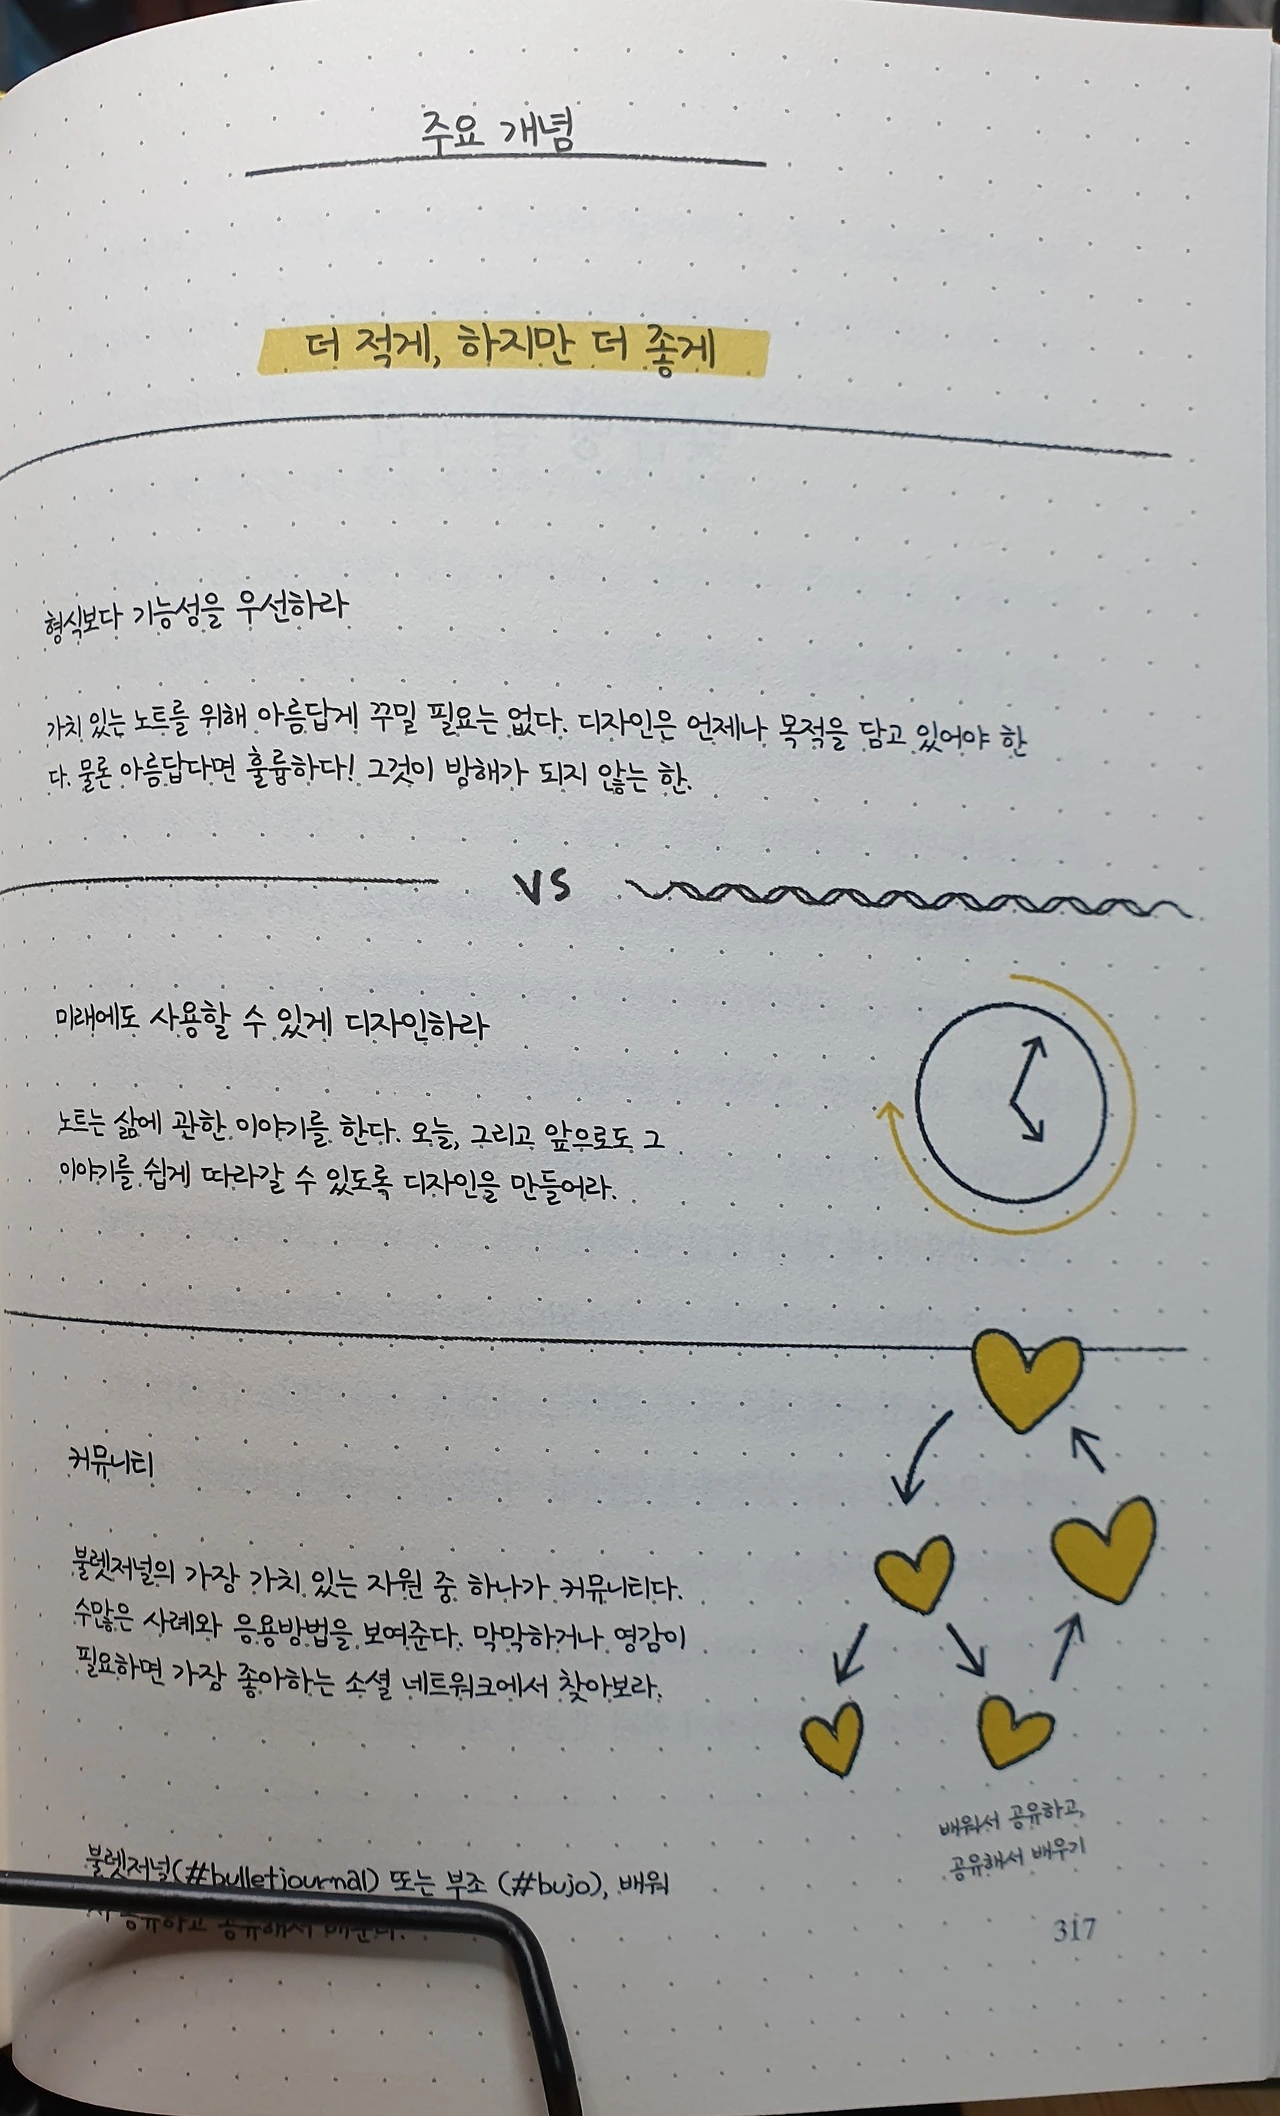 주요 개념
더 적게, 하지만 더 좋게
형식보다 기능성을 우선하라
가치 있는 노트를 위해 아름답게 꾸밀 필요는 없다. 디자인은 언제나 목적을 담고 있어야 한
다. 물론 아름답다면 훌륭하다! 그것이 방해가 되지 않는 한.
VS
미래에도 사용할 수 있게 디자인하라
노트는 삶에 관한 이야기를 한다. 오늘, 그리고 앞으로도 그
이야기를 쉽게 따라갈 수 있도록 디자인을 만들어라.
커뮤니티
불렛저널의 가장 가치 있는 자원 중 하나가 커뮤니티다.
수많은 사례와 응용방법을 보여준다. 막막하거나 영감이
필요하면 가장 좋아하는 소셜 네트워크에서 찾아보라.
배워서 공유하고,
공유해서 배우기
불렛저널(#bulletjournal) 또는 부조 (#bujo), 배워
서 공유하고 공유해서 배운다.
317